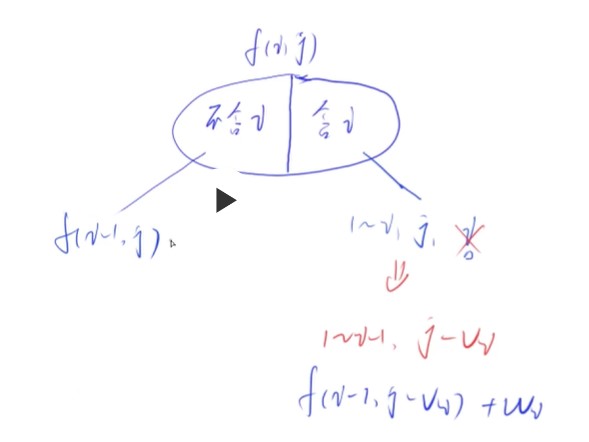 f(i, j)
不含i 含i
f(i-1, j)
1~i, j, i
1~i-1, j-Vi
f(i-1, j-Vi) + Wi